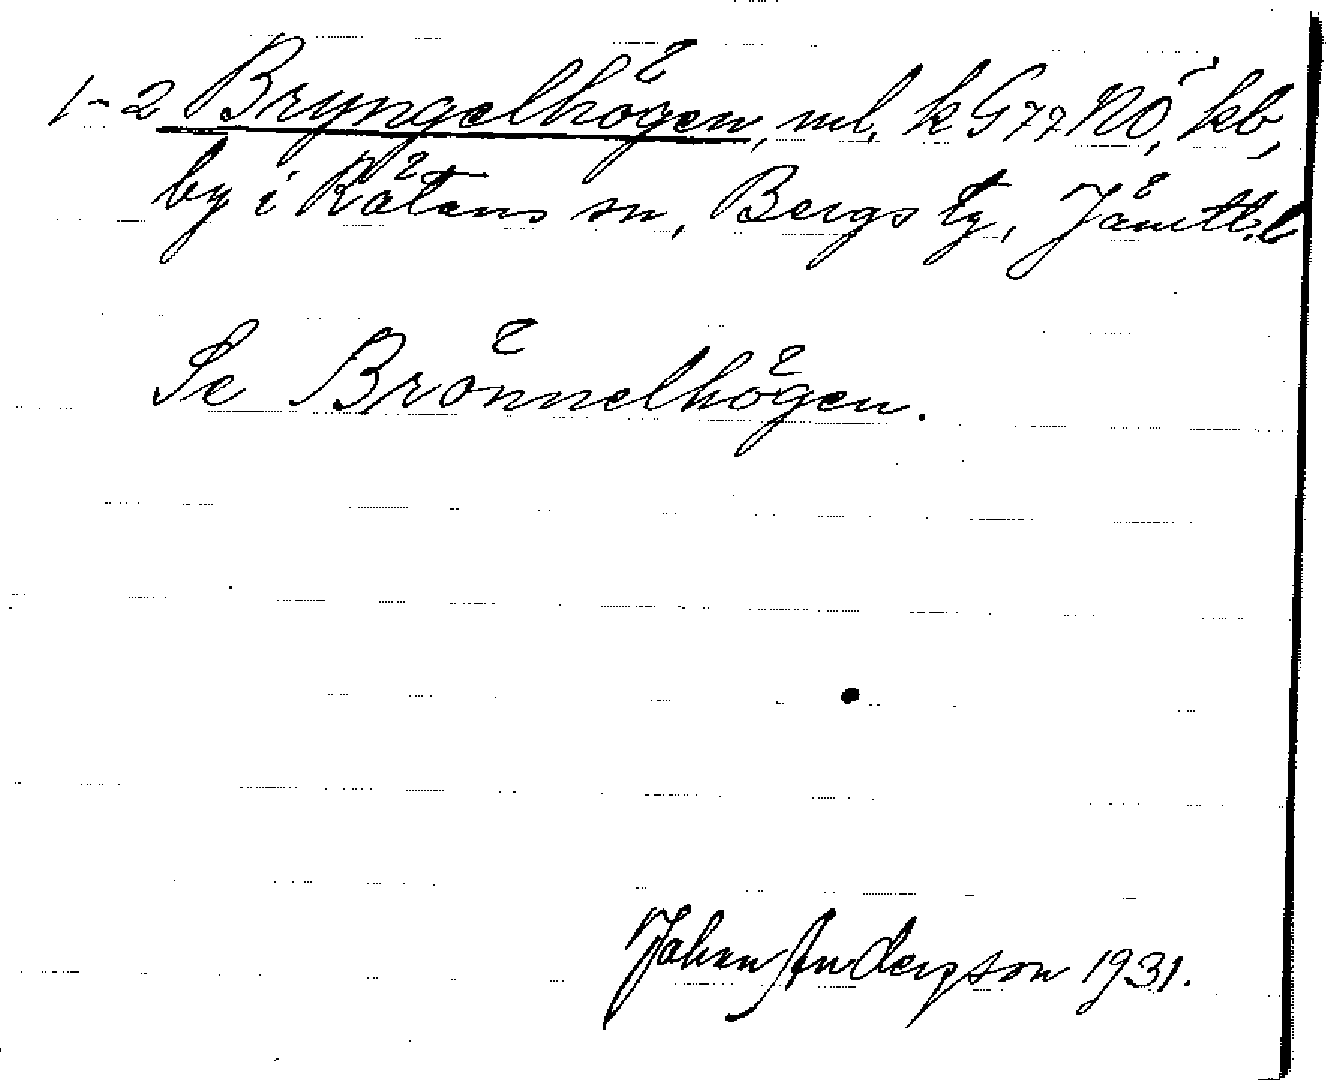 1-2 Bryngelhögen, ml. k G77 NÖ, kb,
by i Rätans sn, Bergs tg, Jämtl. l
Se Brönnelhögen.
Johan Anderson 1931.